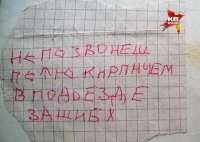 КП
НЕ ПОЗВОНЕШ
ПЕТНЮ КИРПИЧЕМ
В ПОДОЕЗДЕ
ЗАШИБУ